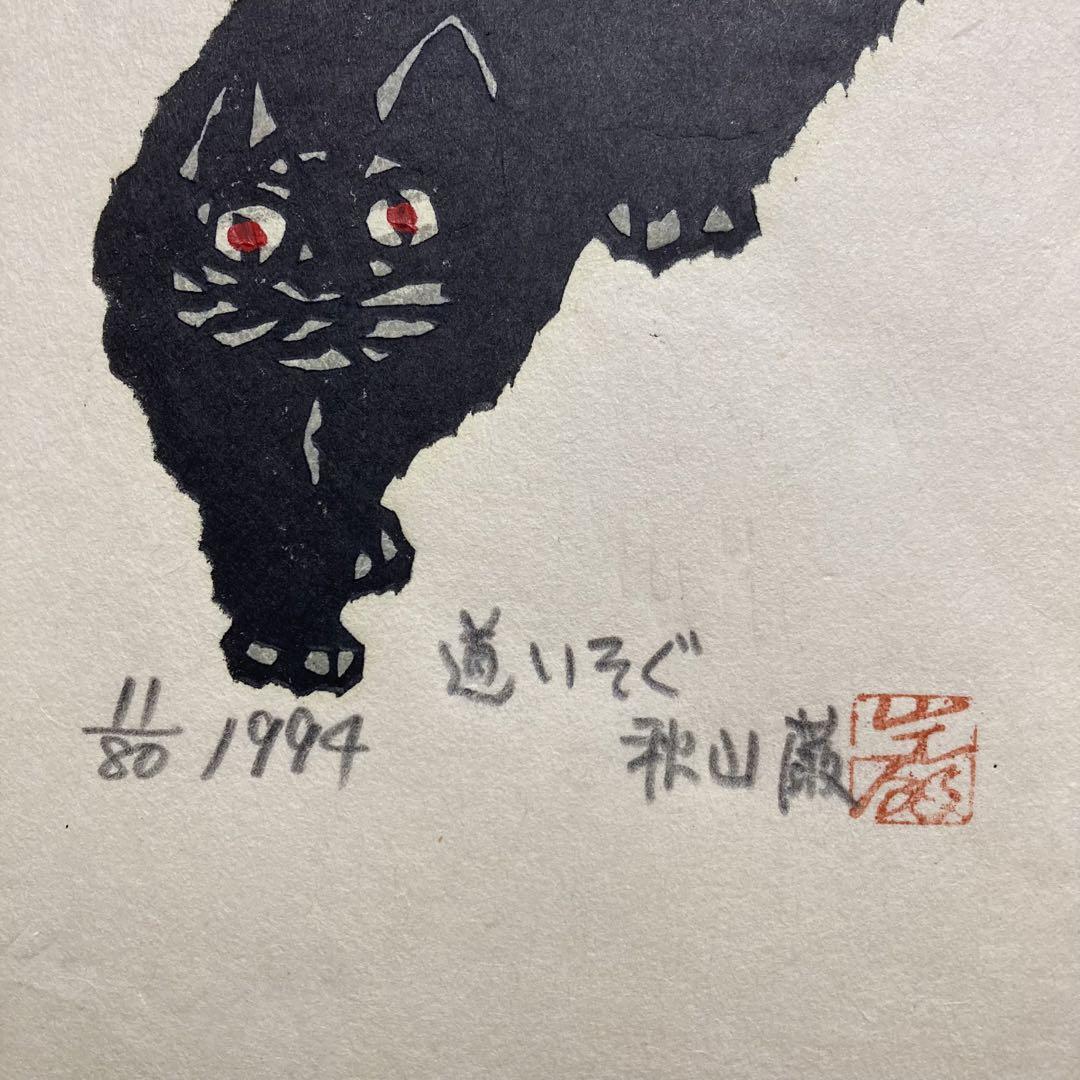 道いそぐ
11/80 1994
秋山巌